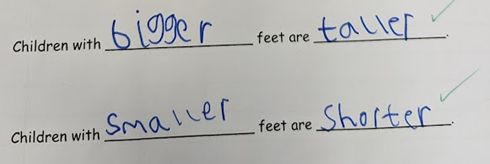 Children with bigger feet are taller.
Children with smaller feet are shorter.